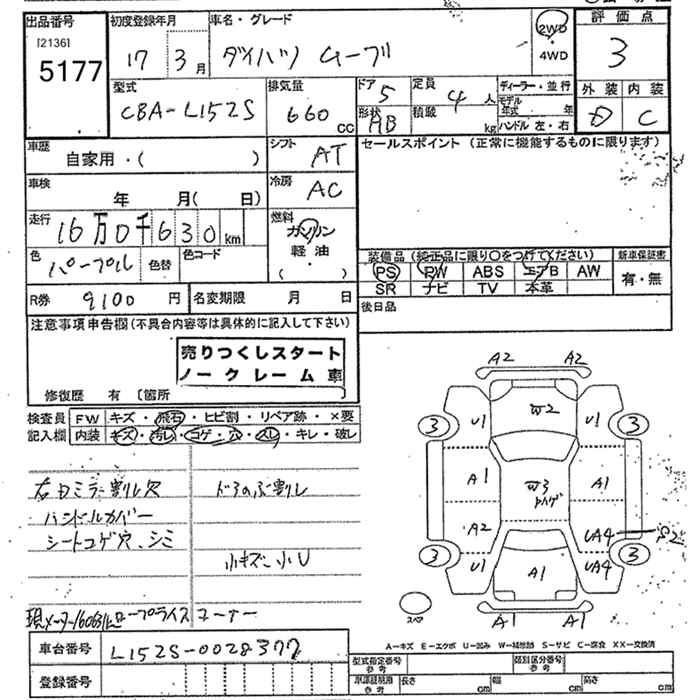 出品番号 初度登録年月 車名・グレード 2WD・4WD 評価点
[2136] 5177 17 3月 ダイハツ ムーブ 3
型式 排気量 ドア 定員 ディーラー・並行 外装 内装
CBA-L152S 660cc 5 4人 モデル年式 年 D C
形状 HB 積載 kg ハンドル 左・右
車歴 自家用・( ) シフト AT セールスポイント (正常に機能するものに限ります)
車検 年 月( 日) 冷房 AC
走行 16万0千630km 燃料 ガソリン 軽油 ( ・ )
色 パープル 色替 色コード
装備品 (純正品に限り○をつけてください) 新車保証書
PS PW ABS エアB AW 有・無
SR ナビ TV 本革
R券 9100円 名変期限 月 日 後日品
注意事項申告欄(不具合内容等は具体的に記入して下さい)
売りつくしスタート
ノークレーム車
修復歴 有 〔箇所
検査員 FW キズ・飛石・ヒビ割・リペア跡・×要
記入欄 内装 キズ・汚レ・コゲ・穴・スレ・キレ・破レ
右ドミラー割レ穴
ハンドルカバー
シートコゲ穴、シミ
小キズ 小U
コーナー
A2 A2
3 U1 W2 U1 3
A1 W3 A1
A2 UA4
3 U1 A1 UA4 3
スペア A1 A1
A-キズ E-エクボ U-凹み W-補修跡 S-サビ C-腐食 XX-交換済
車台番号 L152S-0028377
登録番号
型式指定番号 参考 類別区分番号 参考
車庫証明用 参考 長さ cm 幅 cm 高さ cm